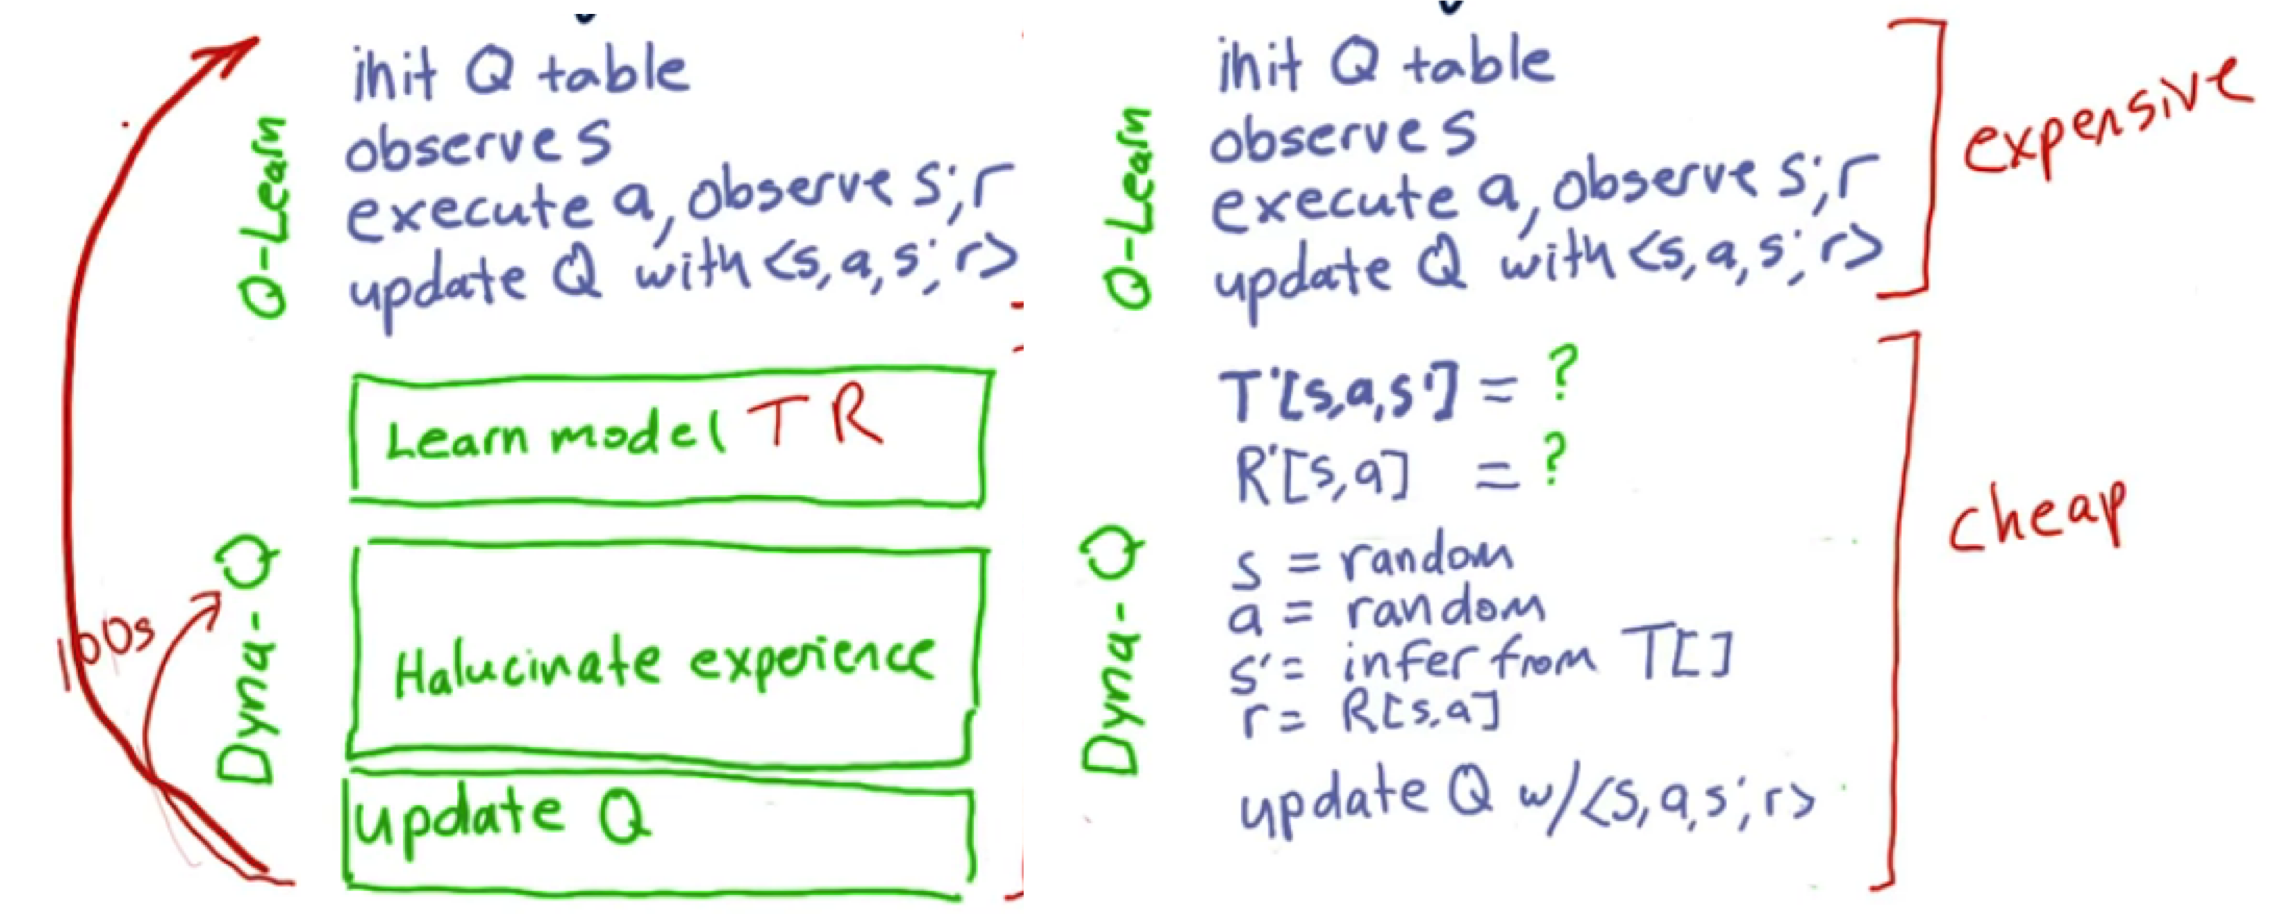 init Q table
observe s
execute a, observe s', r
update Q with <s, a, s', r>
Q-Learn
Learn model T R
Halucinate experience
update Q
Dyna-Q
100s
init Q table
observe s
execute a, observe s', r
update Q with <s, a, s', r>
Q-Learn
expensive
T'[s,a,s'] = ?
R'[s,a] = ?
s = random
a = random
s' = infer from T[]
r = R[s,a]
update Q w/<s, a, s', r>
Dyna-Q
cheap